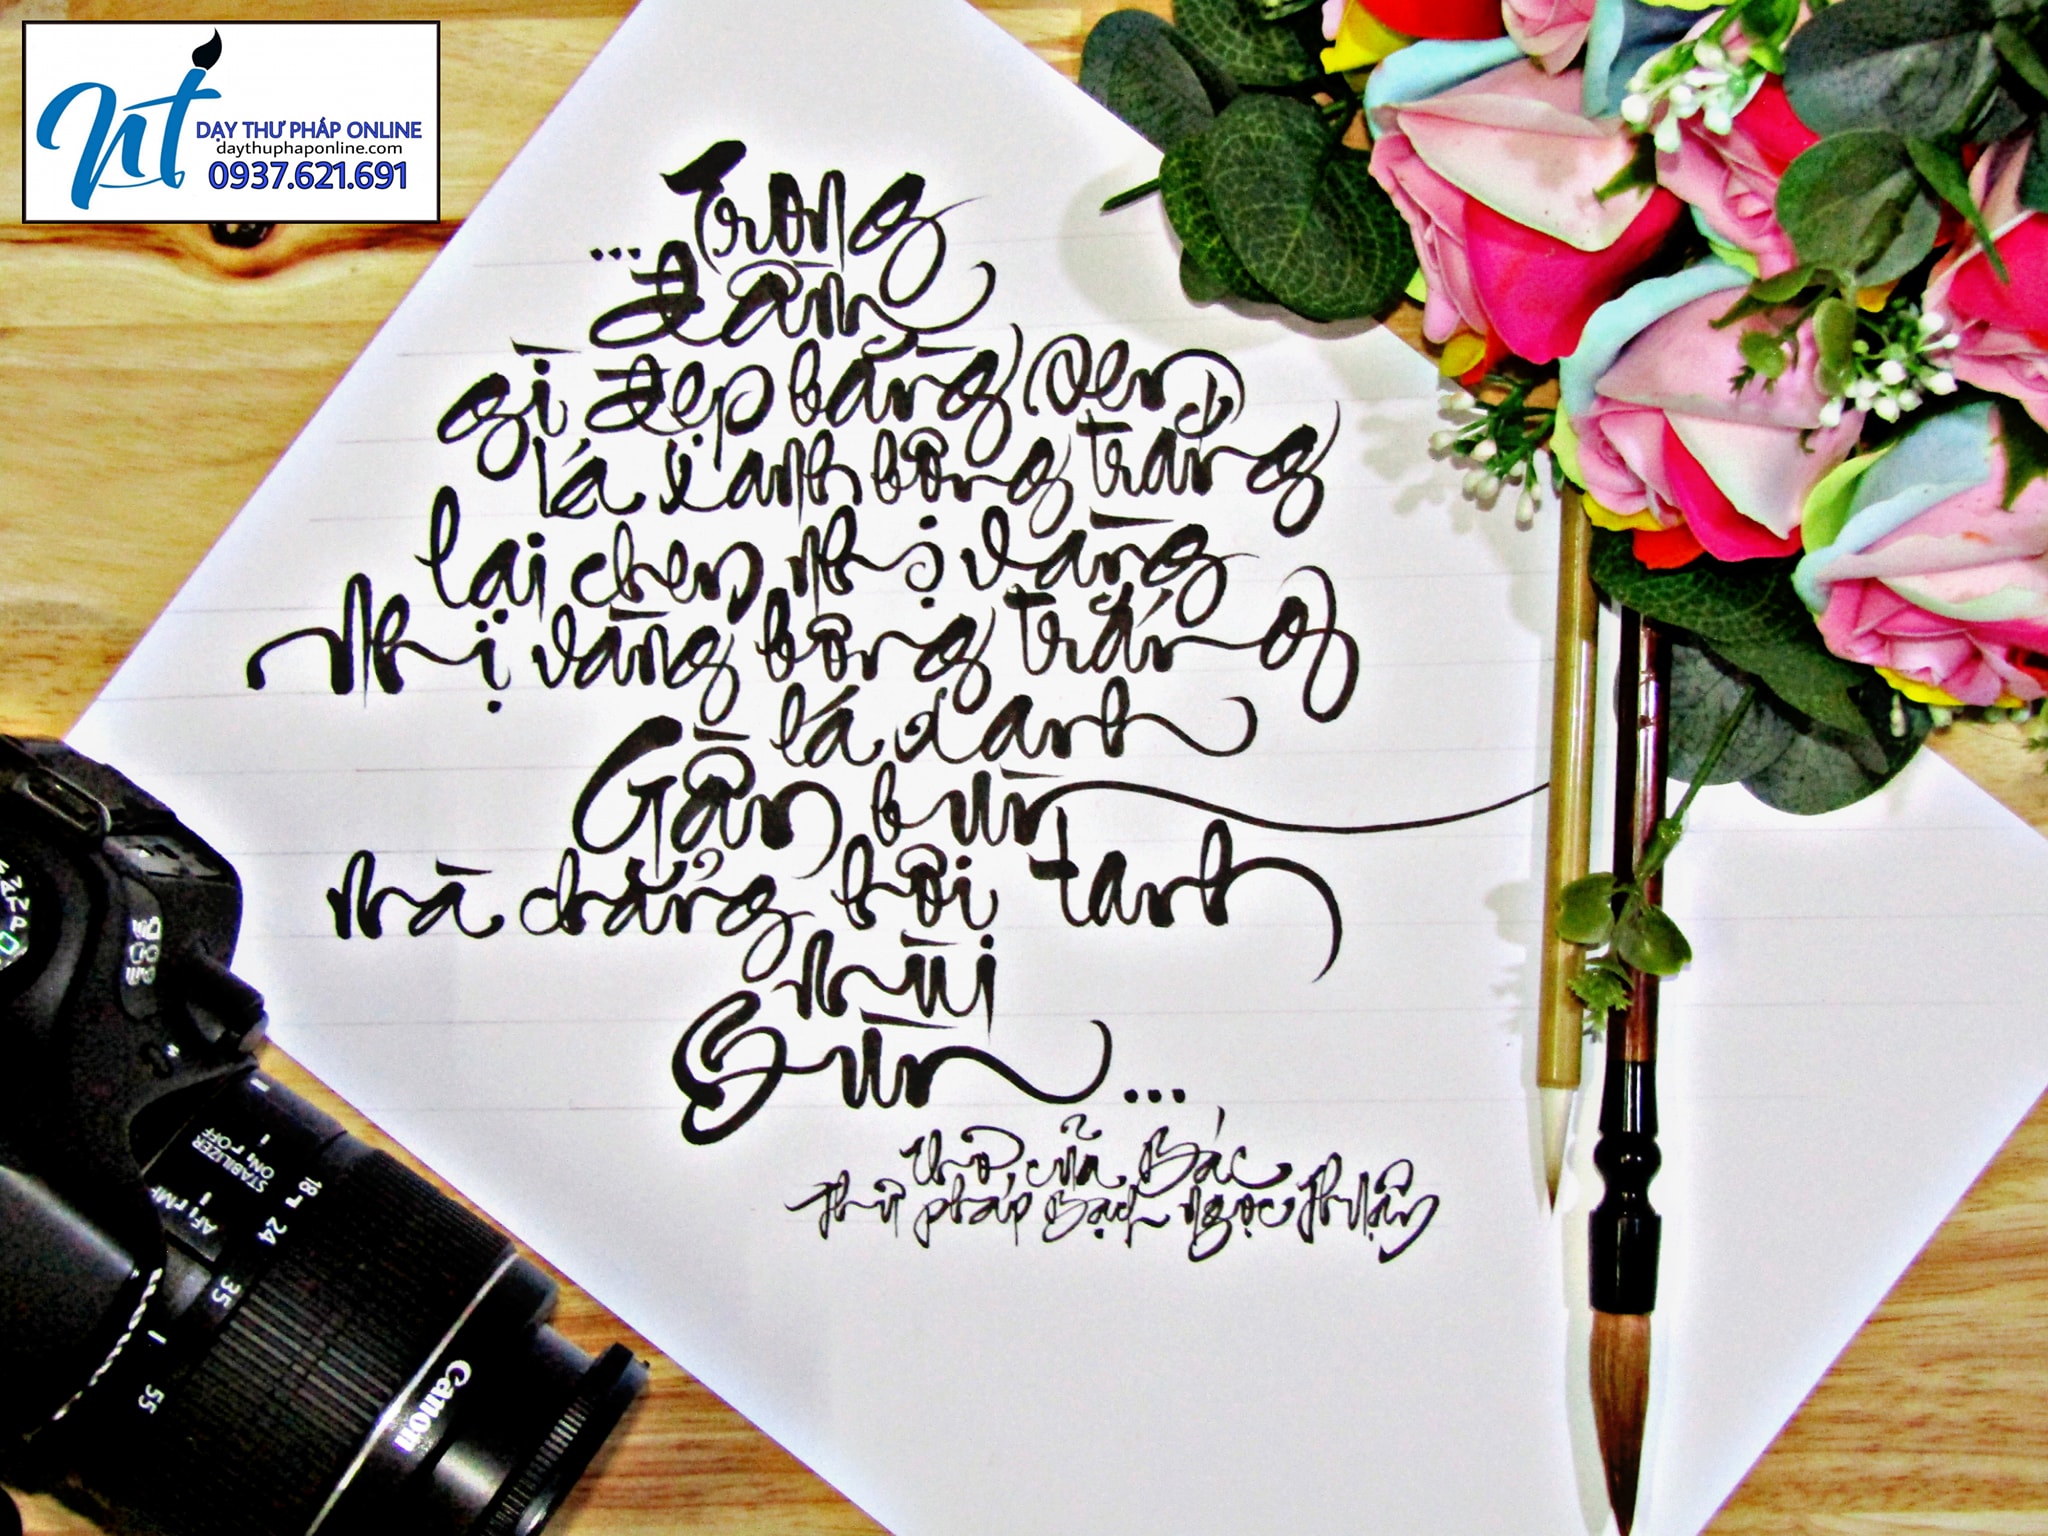 DẠY THƯ PHÁP ONLINE
daythuphaponline.com
0937.621.691
... Trong
đầm
gì đẹp bằng sen
lá xanh bông trắng
lại chen nhị vàng
Nhị vàng bông trắng
lá xanh
Gần bùn
mà chẳng hôi tanh
mùi
Bùn ...
thơ của Bác
thư pháp Bạch Ngọc Thuận
STABILIZER
ON OFF
AF MF
18
24
35
55
Canon